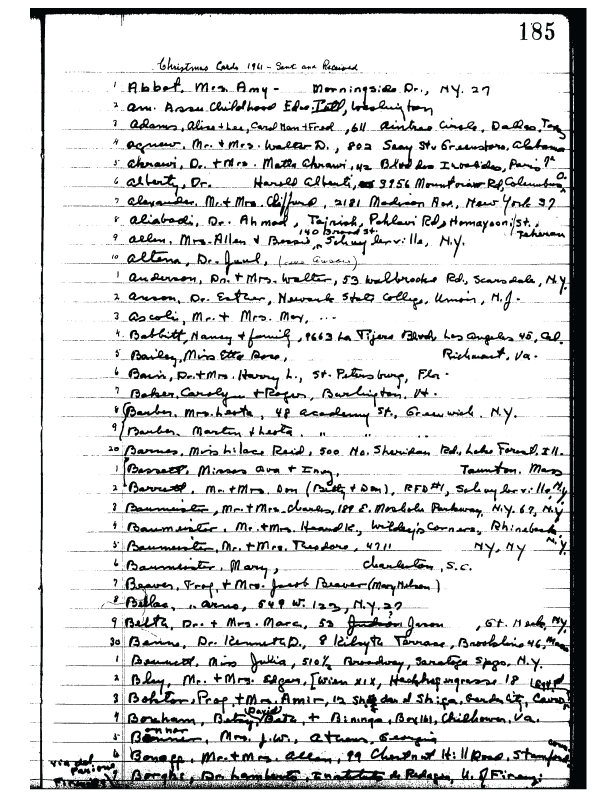 185
Christmas Cards 1961 - Sent and Received
1 Abbot, Mrs. Amy - Morningside Dr., NY. 27
2 Am. Assn. Childhood Edn. Intl, Washington
3 Adams, Alise + Lee, Carol Nan + Fred, 611 Aintree Circle, Dallas, Texas
4 Agnew, Mr. + Mrs. Walter D., 802 Seay St. Greensboro, Alabama
5 Ahrawi, Dr. + Mrs. Matta Ahrawi, 42 Blvd des Invalides, Paris 7e
6 Alberty, Dr. Harold Alberti, 3956 Mountview Rd, Columbus, O.
7 Alexander, Mr. + Mrs. Clifford, 2181 Madison Ave, New York 37
8 Aliabadi, Dr. Ahmad, Tajrish, Pahlavi Rd, Homayooni St. Teheran
9 Allen, Mrs. Allen + Bessie, 140 Broad St. Schuylerville, N.Y.
10 Altena, Dr. Paul,
1 Anderson, Dr. + Mrs. Walter, 53 Walbrooke Rd, Scarsdale, N.Y.
2 Anson, Dr. Esther, Newark State College, Union, N.J.
3 Ascoli, Mr. + Mrs. Max, ...
4 Babbitt, Nancy + family, 9663 La Tijera Blvd Los Angeles 45, Cal.
5 Bailey, Miss Etta Rose, Richmond, Va.
6 Bavin, Dr. + Mrs. Harry L., St. Petersburg, Fla.
7 Baker, Carolyn + Roger, Burlington, Vt.
8 Barber, Mrs. Leota, 48 Academy St., Greenwich. N.Y.
9 Barber, Martin + Leota. " "
20 Barnes, Miss Lilace Reid, 500 No. Sheridan Rd, Lake Forest, Ill.
1 Barrett, Misses Ava + Inez, Taunton, Mass
2 Barrett, Mr. + Mrs. Don (Betty + Don), RFD #1, Schuylerville, NY
3 Baumeister, Mr. + Mrs. Charles, 189 E. Mosholu Parkway, N.Y. 67, N.Y
4 Baumeister, Mr. + Mrs. Wildey's Corners, Rhinebeck N.Y.
5 Baumeister, Mr. + Mrs. Theodore, 4711 NY, NY
6 Baumeister, Mary, Charleston, S.C.
7 Beaver, Prof. + Mrs. Jacob Beaver (Mary Nelson)
8 Bellac, " Arno, 549 W. 123, N.Y. 27
9 Belth, Dr. + Mrs. Marc, 53 Jason, Gt. Neck, N.Y.
30 Benne, Dr. Kenneth D., 8 Kilsyth Terrace, Brookline 46, Mass
1 Bennett, Miss Julia, 510½ Broadway, Saratoga Spgs, N.Y.
2 Blay, Mr. + Mrs. Edgar, [Wien XIX, Hackhofergasse 18
3 Boktor, Prof. + Mrs. Amir, 12 Garden City, Cairo, Egypt
4 Bonham, Betsy, David Beth, + Bininga, Box 161, Chilhowie, Va.
5 Bonner, Mrs. J.W., Athens, Georgia
6 Bonapp, Mr. + Mrs. Allan, 99 Chestnut Hill Road, Stamford, Conn.
7 Borghi, Dr. Lamberto, Instituto di Pedagog, U. of Firenzi
Via del Parione
Firenze